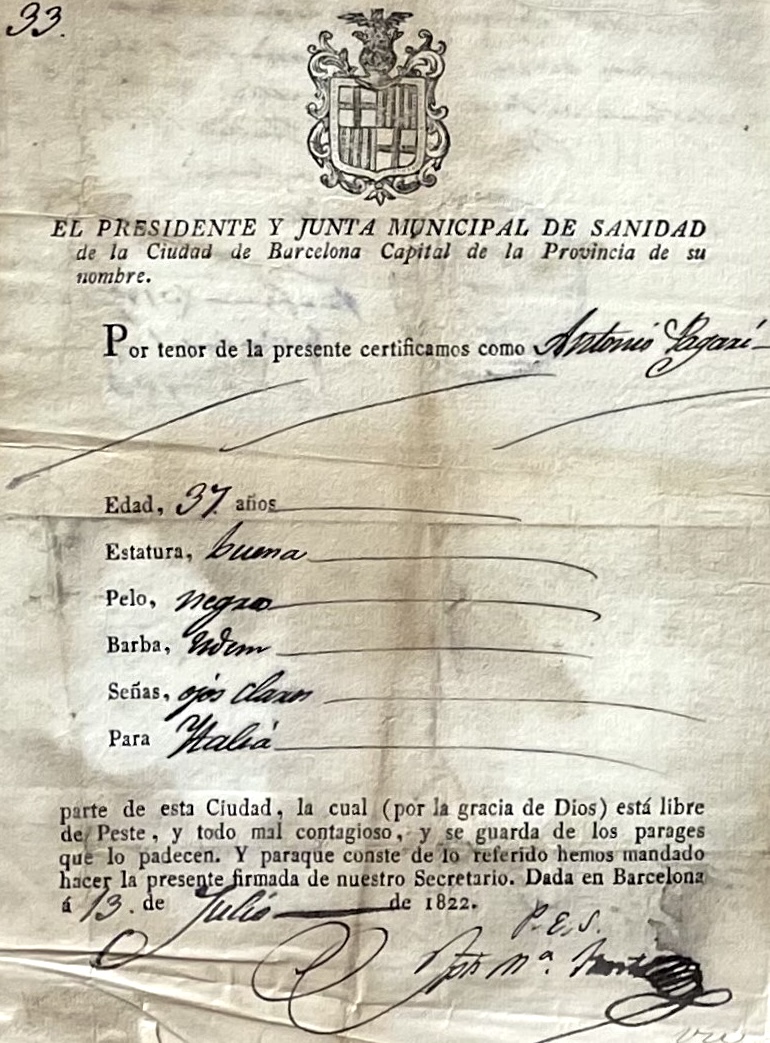 33.
EL PRESIDENTE Y JUNTA MUNICIPAL DE SANIDAD
de la Ciudad de Barcelona Capital de la Provincia de su
nombre.
Por tenor de la presente certificamos como Antonio
Edad, 37 años
Estatura, buena
Pelo, negro
Barba, Ydem
Señas, ojos claros
Para Italiá
parte de esta Ciudad, la cual (por la gracia de Dios) está libre
de Peste, y todo mal contagioso, y se guarda de los parages
que lo padecen. Y paraque conste de lo referido hemos mandado
hacer la presente firmada de nuestro Secretario. Dada en Barcelona
á 13. de Julio de 1822.
P.E.S.